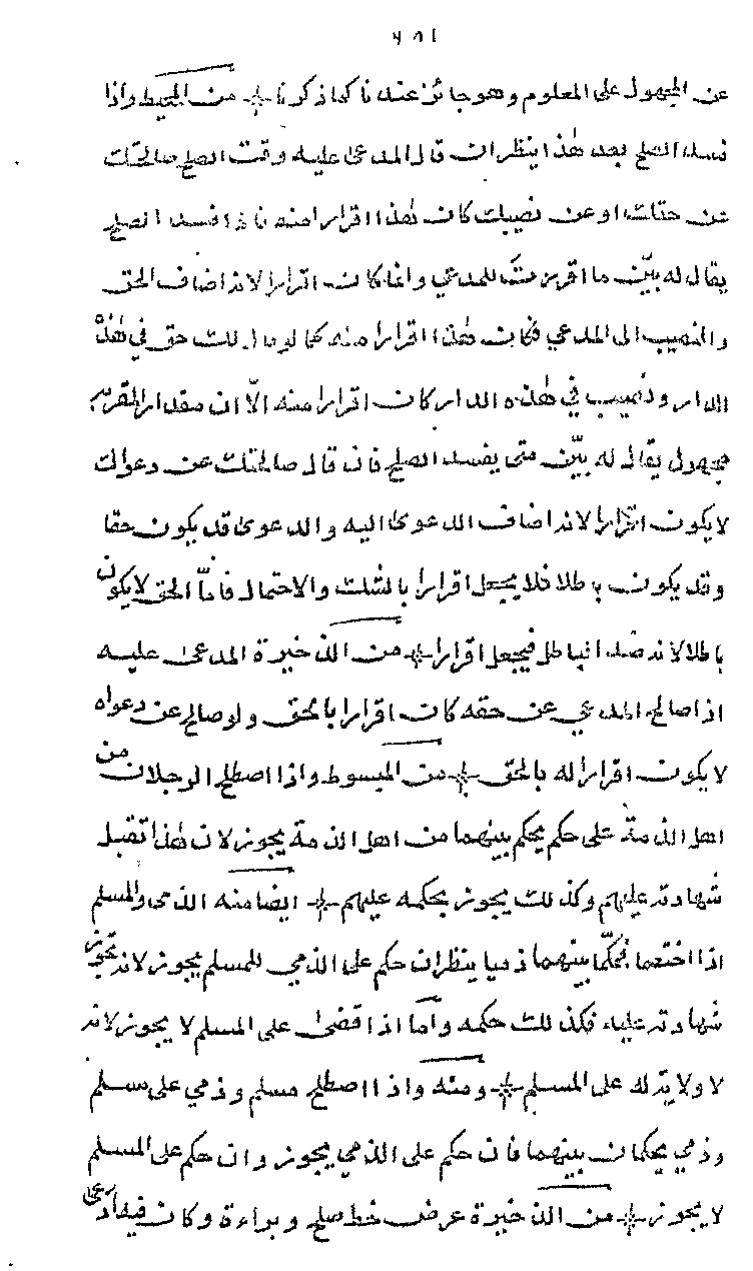 عن المجهول على المعلوم وهو جائز عندنا كما ذكرنا من المحيط واذا
فسد الصلح بعد هذا ينظر ان قال المدعى عليه وقت الصلح صالحتك
عن حقك او عن نصيبك كان هذا اقرارا منه فاذا فسد الصلح
يقال له بيّن ما اقررت للمدعي وانما كان اقرارا لانه اضاف الحق
والنصيب الى المدعي فكان هذا اقرارا منه كما لو قال لك حق في هذه
الدار ونصيب في هذه الدار كان اقرارا منه الّا ان مقدار المقر به
مجهول يقال له بيّن متى يفسد الصلح فان قال صالحتك عن دعواك
لا يكون اقرارا لانه اضاف الدعوى اليه والدعوى قد يكون حقا
وقد يكون باطلا فلا يجعل اقرارا بالشك والاحتمال فامّا الحق لا يكون
باطلا لانه ضد الباطل فيجعل اقرارا من الذخيرة المدعى عليه
اذا صالح المدعي عن حقه كان اقرارا بالحق ولو صالح عن دعواه
لا يكون اقرارا له بالحق من المبسوط واذا اصطلح الرجلان من
اهل الذمة على حكم يحكم بينهما من اهل الذمة يجوز لان هذا تقبل
شهادته عليهم وكذلك يجوز بحكمه عليهم ايضا منه الذمي والمسلم
اذا اختصما فحكّما بينهما ذميا ينظر ان حكم على الذمي للمسلم يجوز لانه تجوز
شهادته عليه فكذلك حكمه وامّا اذا قضى على المسلم لا يجوز لانه
لا ولاية له على المسلم ومنه واذا اصطلح مسلم وذمي على مسلم
وذمي يحكمان بينهما فان حكم على الذمي يجوز وان حكم على المسلم
لا يجوز من الذخيرة عرض خط صلح وبراءة وكان فيه ادعى